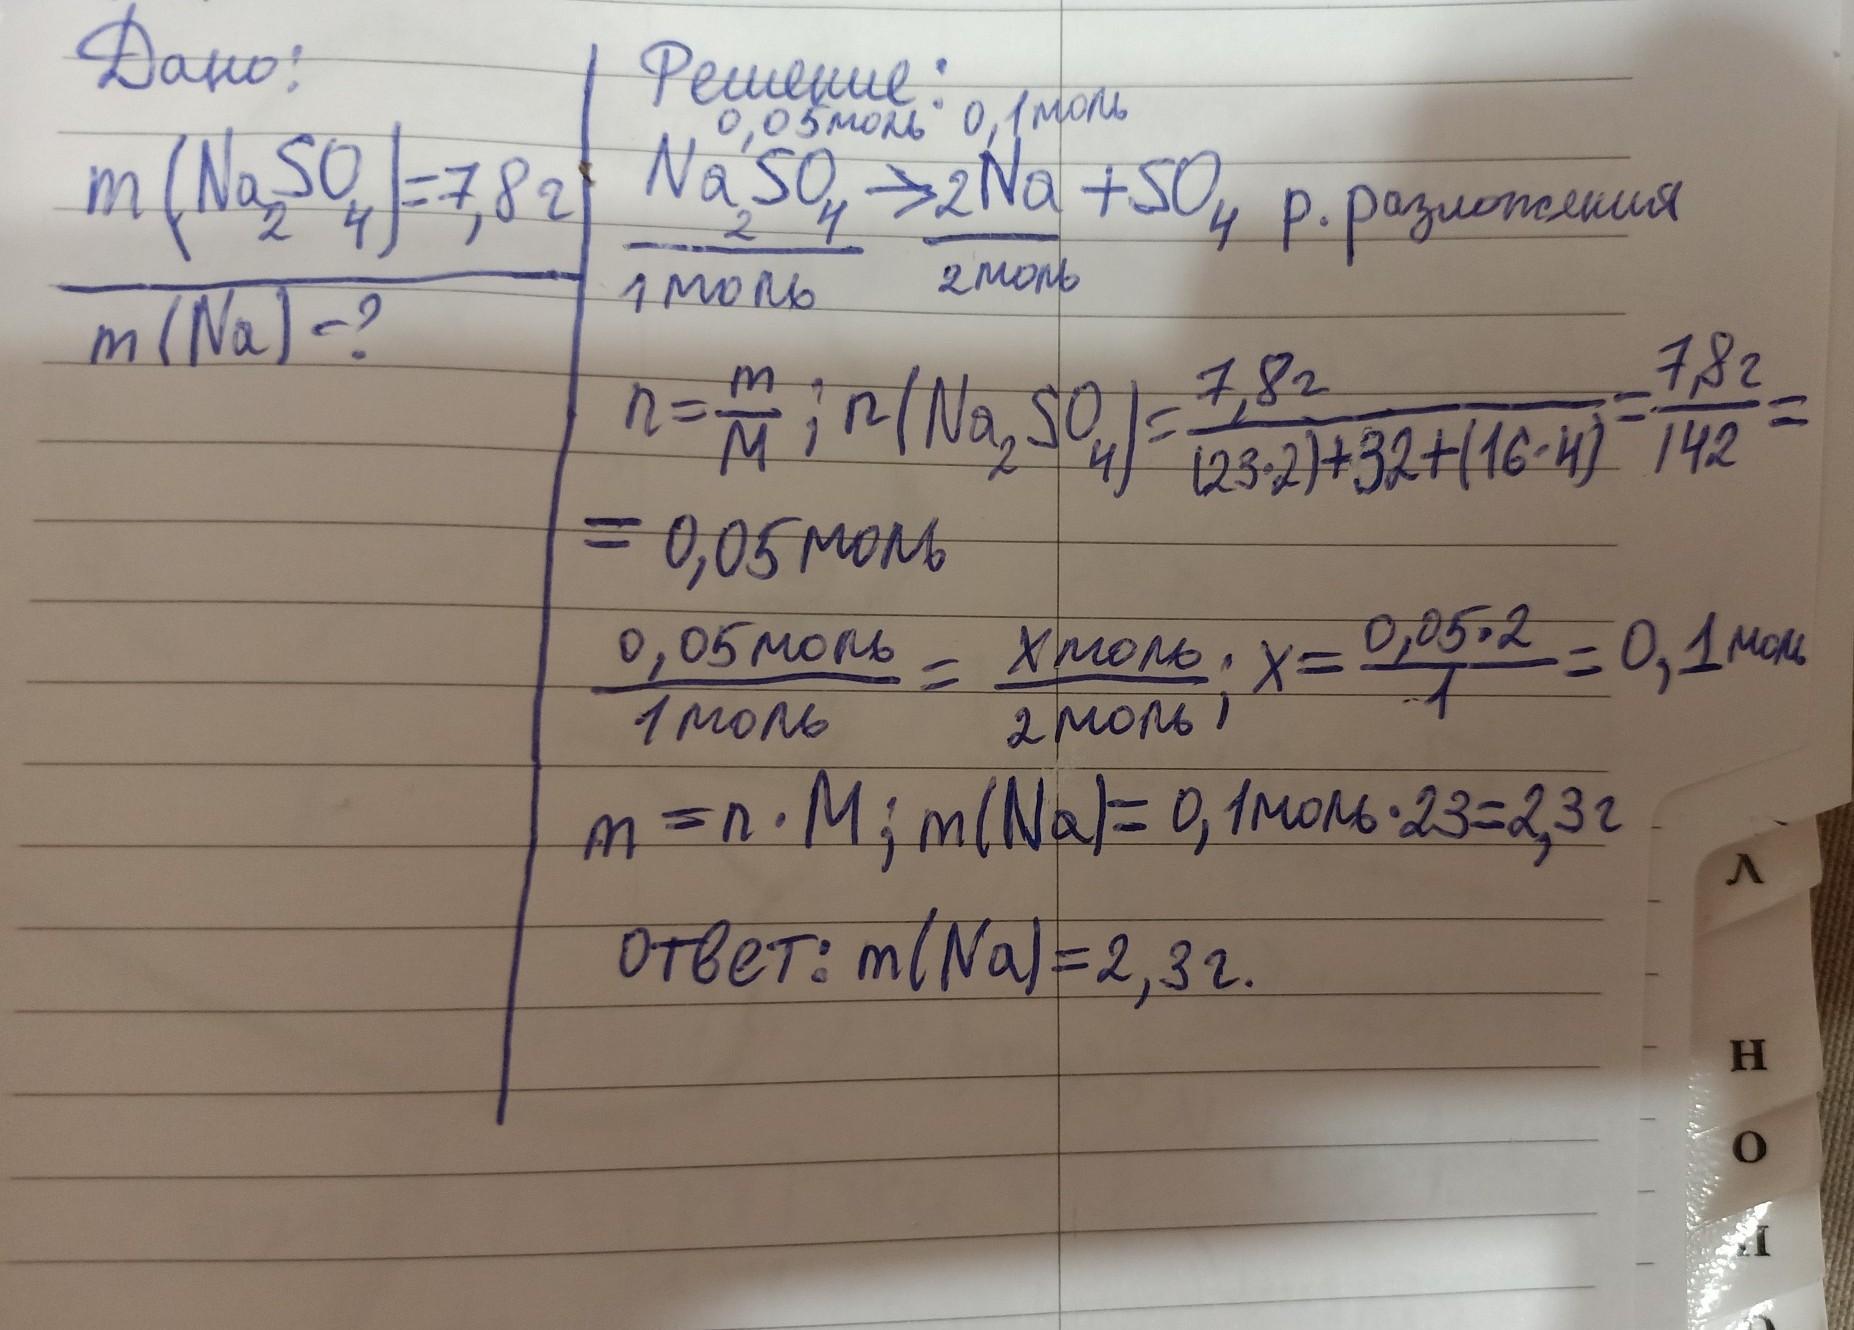 Дано:
m(Na2SO4)=7,8г
m(Na)-?
Решение:
0,05моль 0,1моль
Na2SO4→2Na+SO4 р. разложения
1моль 2моль
n=m/M; n(Na2SO4)=7,8г/(23·2)+32+(16·4)=7,8г/142=
=0,05моль
0,05моль/1моль=Xмоль/2моль; X=0,05·2/1=0,1моль
m=n·M; m(Na)=0,1моль·23=2,3г
Ответ: m(Na)=2,3г.
Л
Н
О
П